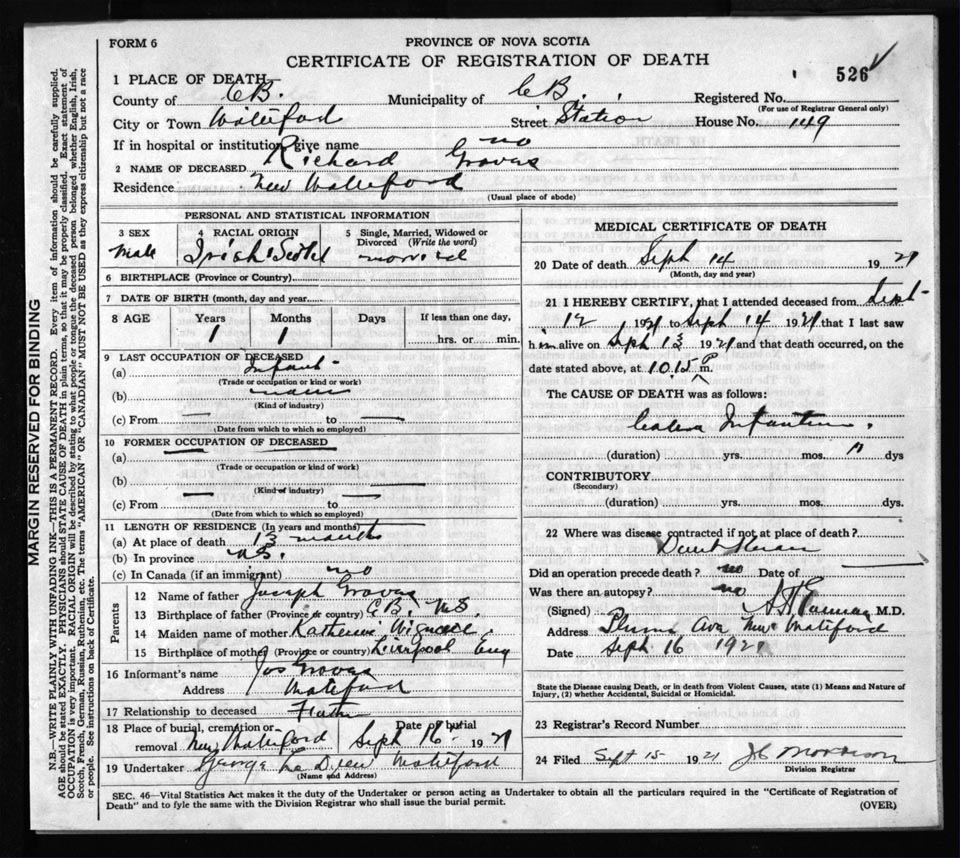 FORM 6
PROVINCE OF NOVA SCOTIA
CERTIFICATE OF REGISTRATION OF DEATH
526
1 PLACE OF DEATH—
County of C B. Municipality of C B. Registered No.
(For use of Registrar General only)
City or Town Waterford Street Station House No. 149
If in hospital or institution, give name no
2 NAME OF DECEASED Richard Groves
Residence New Waterford
(Usual place of abode)
PERSONAL AND STATISTICAL INFORMATION
3 SEX Male
4 RACIAL ORIGIN Irish Scotch
5 Single, Married, Widowed or Divorced (Write the word)
6 BIRTHPLACE (Province or Country)
7 DATE OF BIRTH (month, day and year
8 AGE Years Months Days If less than one day,
1 1 hrs. or min.
9 LAST OCCUPATION OF DECEASED
(a) Infant
(Trade or occupation or kind or work)
(b)
(Kind of industry)
(c) From — to —
(Date from which to which so employed)
10 FORMER OCCUPATION OF DECEASED
(a)
(Trade or occupation or kind of work)
(b)
(Kind of industry)
(c) From to
(Date from which to which so employed)
11 LENGTH OF RESIDENCE (In years and months)
(a) At place of death 13 months
(b) In province N.S.
(c) In Canada (if an immigrant) no
Parents
12 Name of father Joseph Groves
13 Birthplace of father (Province or country) C B. N.S.
14 Maiden name of mother Katherine
15 Birthplace of mother (Province or country) Liverpool Eng
16 Informant's name Jos Groves
Address Waterford
17 Relationship to deceased Father
18 Place of burial, cremation or removal New Waterford Date of burial Sept 16 1921
19 Undertaker George Waterford
(Name and Address)
MEDICAL CERTIFICATE OF DEATH
20 Date of death Sept 14 1921
(Month, day and year)
21 I HEREBY CERTIFY, that I attended deceased from Sept
12 1921 to Sept 14 1921 that I last saw
him alive on Sept 13 1921 and that death occurred, on the
date stated above, at 10.15 P m.
The CAUSE OF DEATH was as follows:
Colera Infantum.
(duration) yrs. mos. dys
CONTRIBUTORY
(Secondary)
(duration) yrs. mos. dys.
22 Where was disease contracted if not at place of death?
Did an operation precede death? no Date of
Was there an autopsy? no
(Signed) M.D.
Address Plumer Ave New Waterford
Date Sept 16 1921
State the Disease causing Death, or in death from Violent Causes, state (1) Means and Nature of
Injury, (2) whether Accidental, Suicidal or Homicidal.
23 Registrar's Record Number
24 Filed Sept 15 1921 J C Morrison
Division Registrar
SEC. 46—Vital Statistics Act makes it the duty of the Undertaker or person acting as Undertaker to obtain all the particulars required in the "Certificate of Registration of
Death" and to fyle the same with the Division Registrar who shall issue the burial permit.
(OVER)
MARGIN RESERVED FOR BINDING
N.B.—WRITE PLAINLY WITH UNFADING INK—THIS IS A PERMANENT RECORD. Every item of information should be carefully supplied.
AGE should be stated EXACTLY. PHYSICIANS should STATE CAUSE OF DEATH in plain terms, so that it may be properly classified. Exact statement of
OCCUPATION is very important. RACIAL ORIGIN will be described by stating to what people or tongue the deceased person belonged whether English, Irish,
Scotch, French, German, Russian, Ruthenian, etc. The terms "AMERICAN" OR "CANADIAN" MUST NOT BE USED as they express citizenship but not a race
or people. See instructions on back of Certificate.